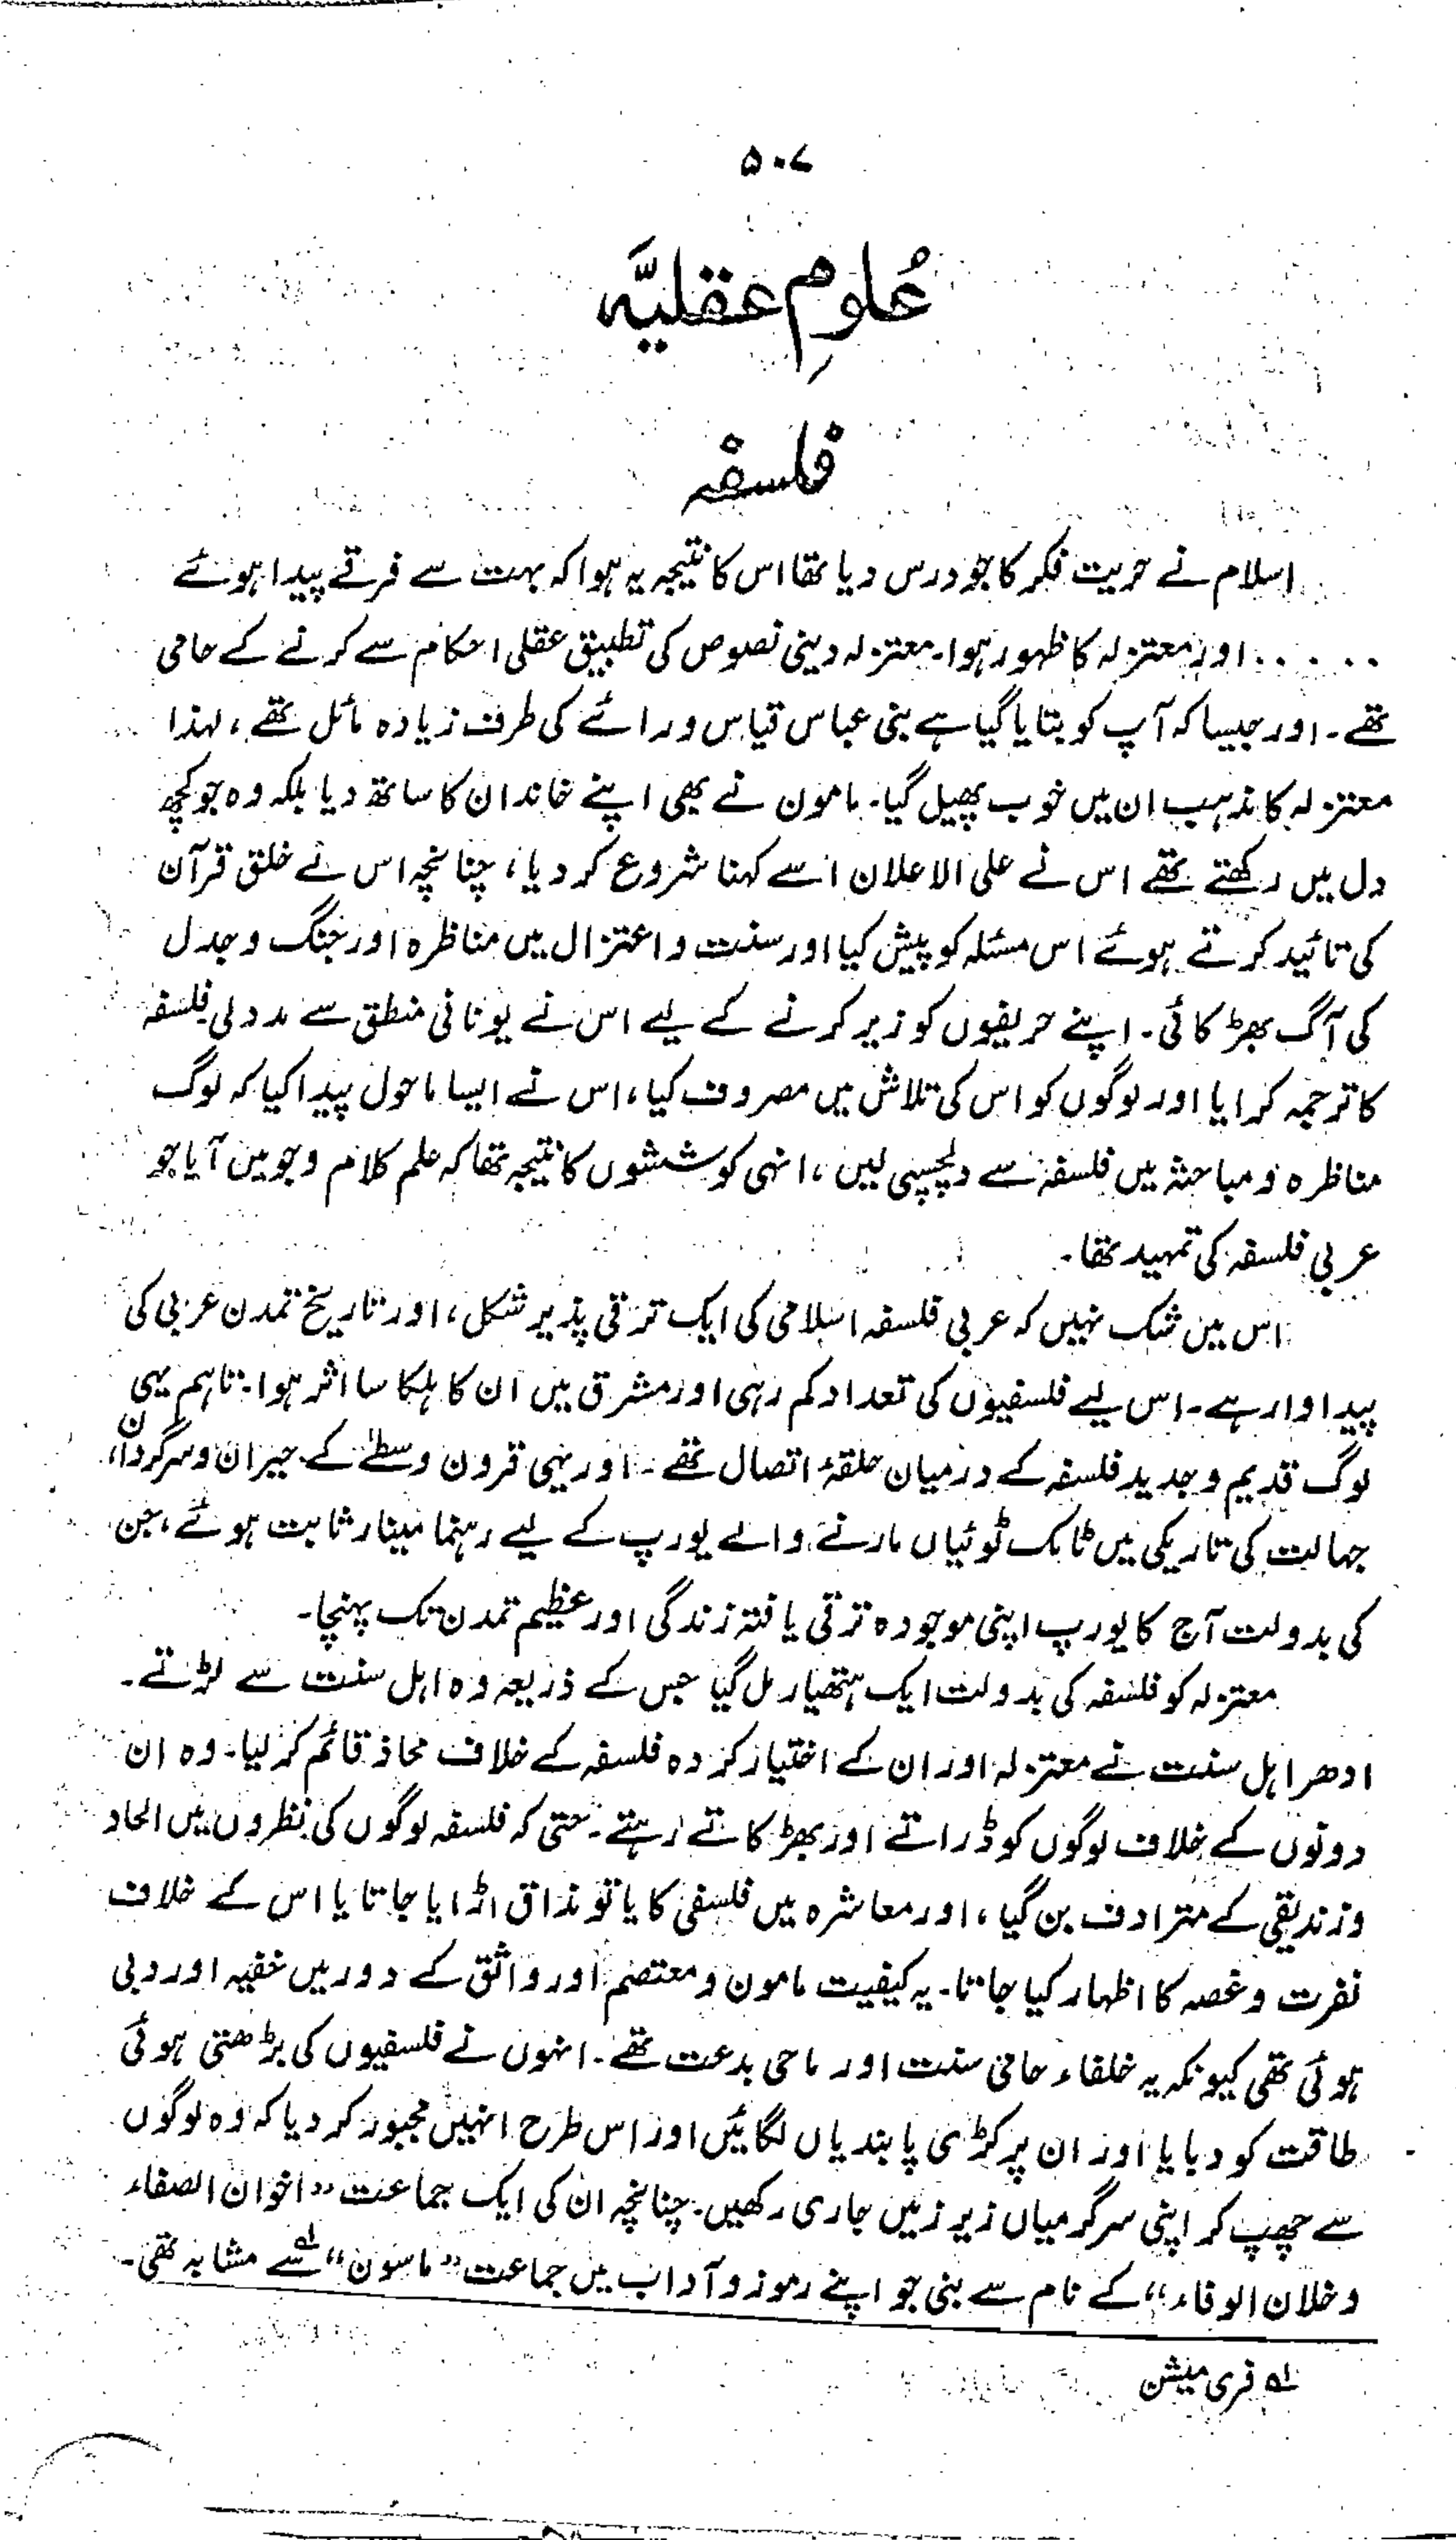 ۵۰۷
عُلومِ عقلیَّہ
فلسفہ
اسلام نے حریت فکر کا جو درس دیا تھا اس کا نتیجہ یہ ہوا کہ بہت سے فرقے پیدا ہوئے
..... اور معتزلہ کا ظہور ہوا۔ معتزلہ دینی نصوص کی تطبیق عقلی احکام سے کرنے کے حامی
تھے۔ اور جیسا کہ آپ کو بتایا گیا ہے بنی عباس قیاس ورائے کی طرف زیادہ مائل تھے، لہذا
معتزلہ کا مذہب ان میں خوب پھیل گیا۔ مامون نے بھی اپنے خاندان کا ساتھ دیا بلکہ وہ جو کچھ
دل میں رکھتے تھے اس نے علی الاعلان اسے کہنا شروع کر دیا، چنانچہ اس نے خلق قرآن
کی تائید کرتے ہوئے اس مسئلہ کو پیش کیا اور سنت واعتزال میں مناظرہ اور جنگ وجدل
کی آگ بھڑکائی۔ اپنے حریفوں کو زیر کرنے کے لیے اس نے یونانی منطق سے مدد لی فلسفہ
کا ترجمہ کرایا اور لوگوں کو اس کی تلاش میں مصروف کیا، اس نے ایسا ماحول پیدا کیا کہ لوگ
مناظرہ ومباحثہ میں فلسفہ سے دلچسپی لیں، انہی کوششوں کا نتیجہ تھا کہ علم کلام وجو میں آیا جو
عربی فلسفہ کی تمہید تھا۔
اس میں شک نہیں کہ عربی فلسفہ اسلامی کی ایک ترقی پذیر شکل، اور تاریخ تمدن عربی کی
پیداوار ہے۔ اس لیے فلسفیوں کی تعداد کم رہی اور مشرق میں ان کا ہلکا سا اثر ہوا۔ تاہم یہی
لوگ قدیم وجدید فلسفہ کے درمیان حلقۂ اتصال تھے۔ اور یہی قرون وسطیٰ کے حیران وسرگرداں،
جہالت کی تاریکی میں ٹامک ٹوئیاں مارنے والے یورپ کے لیے رہنما مینار ثابت ہوئے، جن
کی بدولت آج کا یورپ اپنی موجودہ ترقی یافتہ زندگی اور عظیم تمدن تک پہنچا۔
معتزلہ کو فلسفہ کی بدولت ایک ہتھیار مل گیا جس کے ذریعہ وہ اہل سنت سے لڑتے۔
ادھر اہل سنت نے معتزلہ اور ان کے اختیار کردہ فلسفہ کے خلاف محاذ قائم کر لیا۔ وہ ان
دونوں کے خلاف لوگوں کو ڈراتے اور بھڑکاتے رہتے۔ حتی کہ فلسفہ لوگوں کی نظروں میں الحاد
وزندیقی کے مترادف بن گیا، اور معاشرہ میں فلسفی کا یا تو مذاق اڑایا جاتا یا اس کے خلاف
نفرت وغصہ کا اظہار کیا جاتا۔ یہ کیفیت مامون ومعتصم اور واثق کے دور میں خفیہ اور دبی
ہوئی تھی کیونکہ یہ خلفاء حامی سنت اور ماحی بدعت تھے۔ انہوں نے فلسفیوں کی بڑھتی ہوئی
طاقت کو دبایا اور ان پر کڑی پابندیاں لگائیں اور اس طرح انہیں مجبور کر دیا کہ وہ لوگوں
سے چھپ کر اپنی سرگرمیاں زیر زمیں جاری رکھیں۔ چنانچہ ان کی ایک جماعت ”اخوان الصفاء
وخلان الوفاء“ کے نام سے بنی جو اپنے رموز وآداب میں جماعت ”ماسون“ لہ سے مشابہ تھی۔
لہ فری میشن